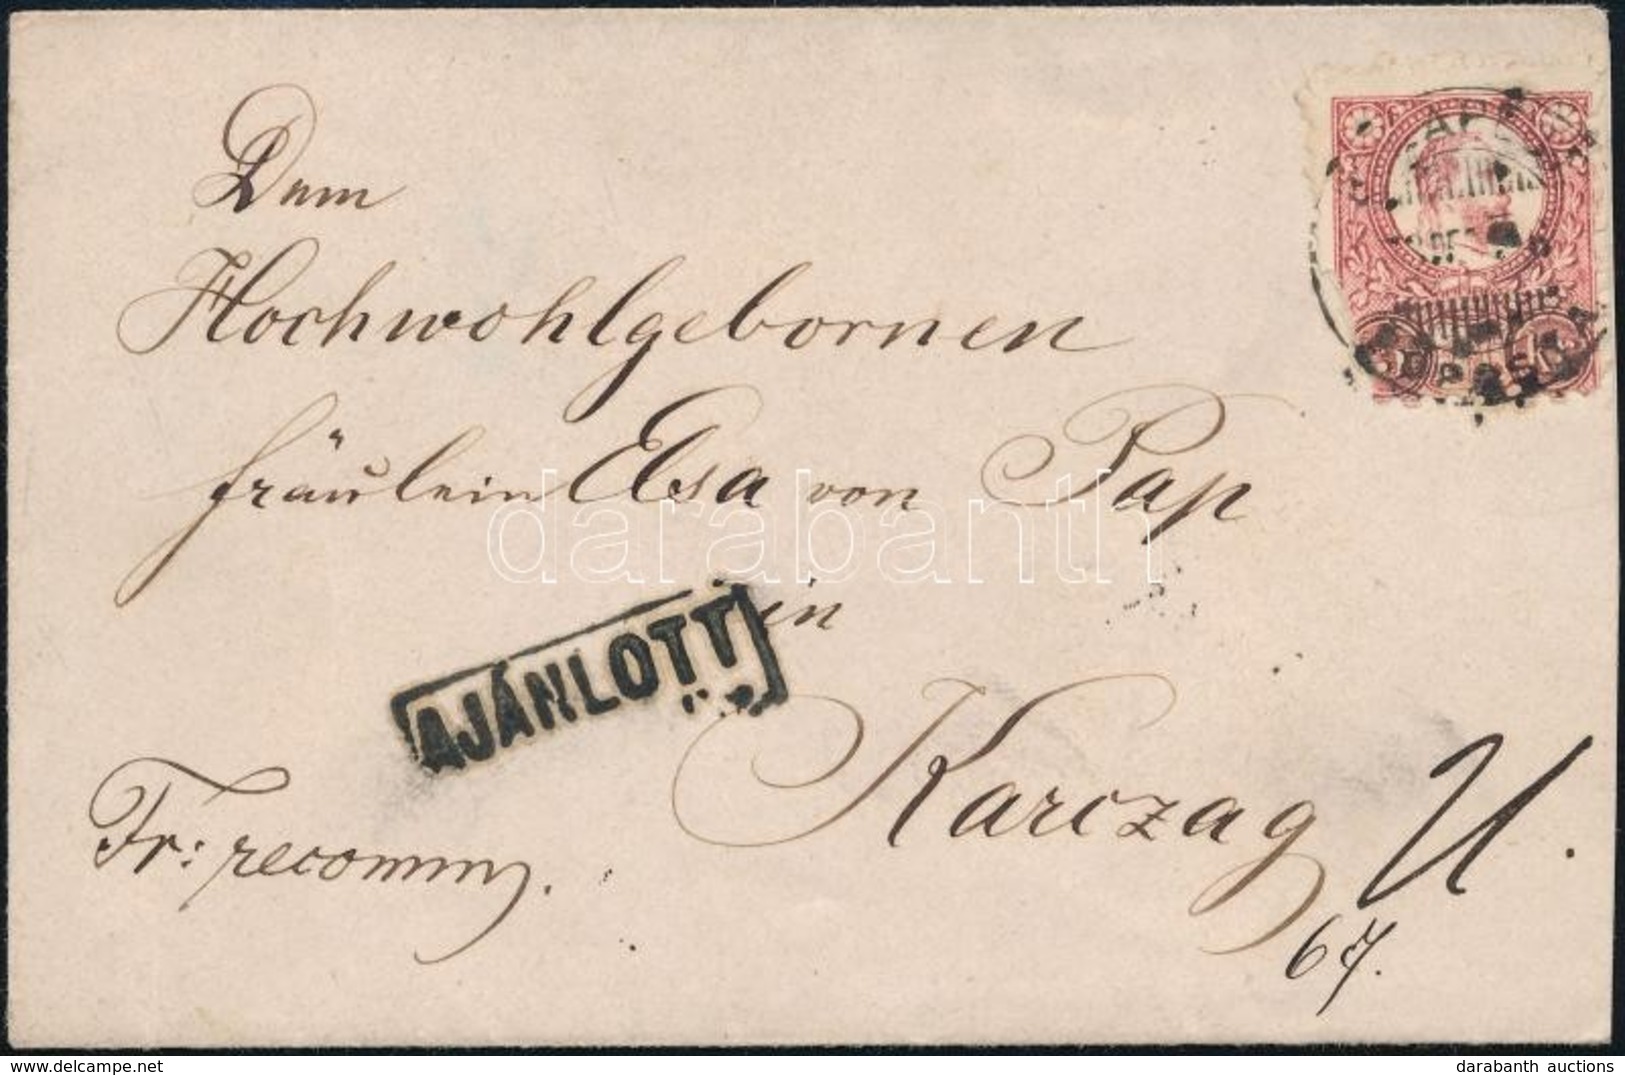 Dem
Hochwohlgebornen
fräulein Elsa von Pap
in
AJÁNLOTT
Karczag
Fr: recomm.
67.
darabanth
www.delcampe.net
darabanth auctions